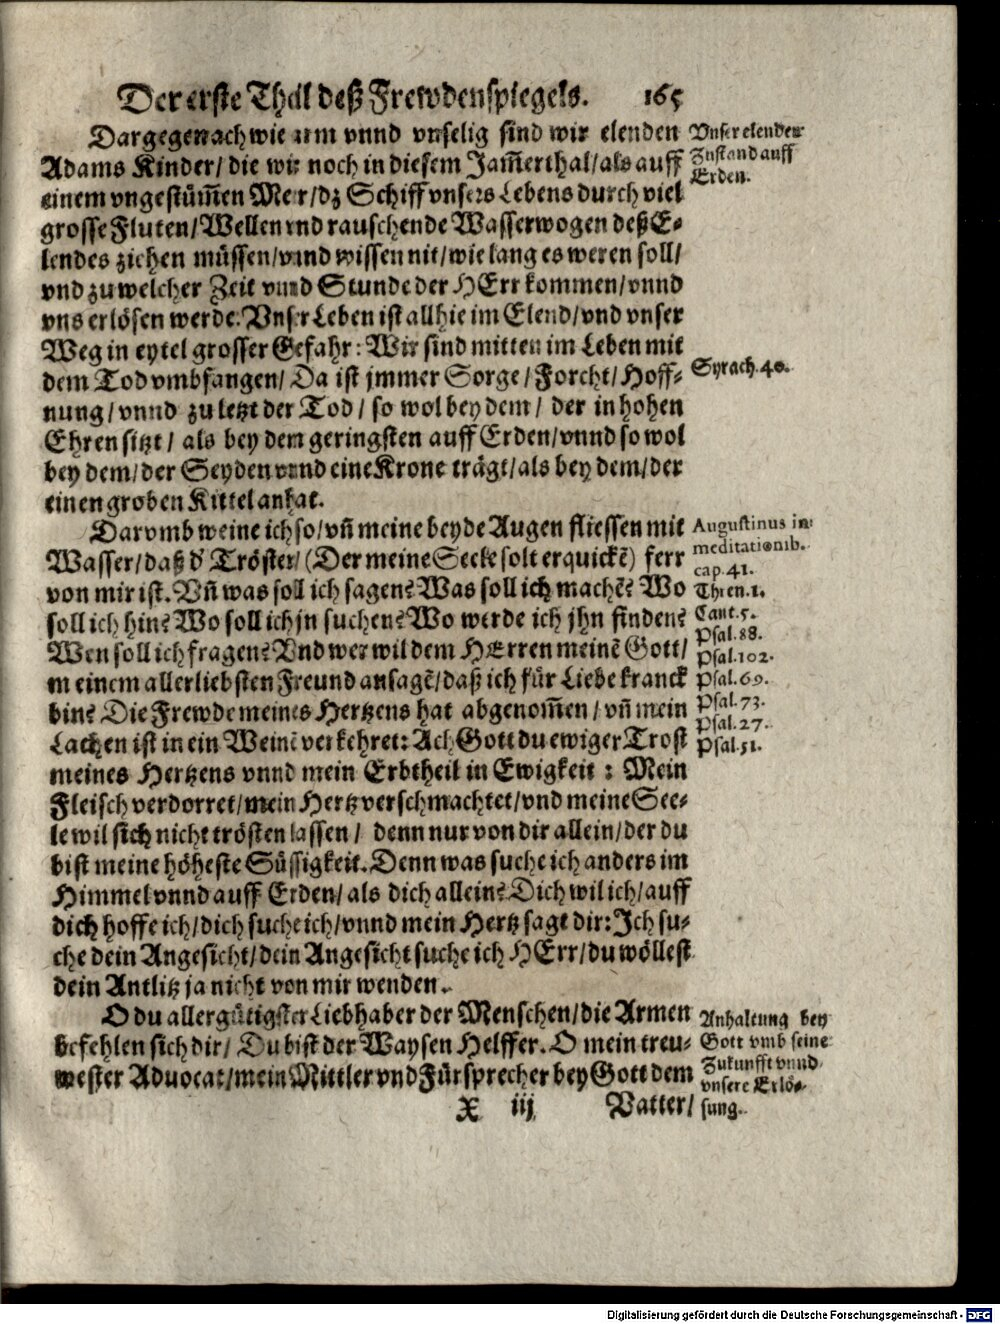 Der erste Theil deß Frewdenspiegels. 165
Dargegen ach wie arm vnnd vnselig sind wir elenden
Adams Kinder/ die wir noch in diesem Jam̃erthal/ als auff
einem vngestüm̃en Meer/ dz Schiff vnsers Lebens durch viel
grosse Fluten/ Wellen vnd rauschende Wasserwogen deß E-
lendes ziehen müssen/ vnnd wissen nit/ wie lang es weren soll/
vnd zu welcher Zeit vnnd Stunde der HErr kommen/ vnnd
vns erlösen werde. Vnser Leben ist allhie im Elend/ vnd vnser
Weg in eytel grosser Gefahr: Wir sind mitten im Leben mit
dem Tod vmbfangen/ Da ist jmmer Sorge/ Forcht/ Hoff-
nung/ vnnd zu letzt der Tod/ so wol bey dem/ der in hohen
Ehren sitzt/ als bey dem geringsten auff Erden/ vnnd so wol
bey dem/ der Seyden vnnd eine Krone trägt/ als bey dem/ der
einen groben Kittel anhat.
Darvmb weine ich so/ vñ meine beyde Augen fliessen mit
Wasser/ daß d' Tröster/ (Der meine Seele solt erquickẽ) ferr
von mir ist. Vñ was soll ich sagen? Was soll ich machẽ? Wo
soll ich hin? Wo soll ich jn suchen? Wo werde ich jhn finden?
Wen soll ich fragen? Vnd wer wil dem HErren meinẽ Gott/
meinem allerliebsten Freund ansagẽ/ daß ich für Liebe kranck
bin? Die Frewde meines Hertzens hat abgenom̃en/ vñ mein
Lachen ist in ein Weinẽ verkehret: Ach Gott du ewiger Trost
meines Hertzens vnnd mein Erbtheil in Ewigkeit: Mein
Fleisch verdorret/ mein Hertz verschmachtet/ vnd meine See-
le wil sich nicht trösten lassen/ denn nur von dir allein/ der du
bist meine höheste Süssigkeit. Denn was suche ich anders im
Himmel vnnd auff Erden/ als dich allein? Dich wil ich/ auff
dich hoffe ich/ dich suche ich/ vnnd mein Hertz sagt dir: Ich su-
che dein Angesicht/ dein Angesicht suche ich HErr/ du wöllest
dein Antlitz ja nicht von mir wenden.
O du allergütigster Liebhaber der Menschen/ die Armen
befehlen sich dir/ Du bist der Waysen Helffer. O mein treu-
wester Advocat/ mein Mittler vnd Fürsprecher bey Gott dem
X iij Vatter/
Vnser elender
Zustand auff
Erden.
Syrach. 40.
Augustinus in
meditationib.
cap. 41.
Thren. 1.
Cant. 5.
Psal. 88.
Psal. 102.
Psal. 69.
Psal. 73.
Psal. 27.
Psal. 51.
Anhaltung bey
Gott vmb seine
Zukunfft vnnd
vnsere Erlö-
sung.
Digitalisierung gefördert durch die Deutsche Forschungsgemeinschaft - DFG